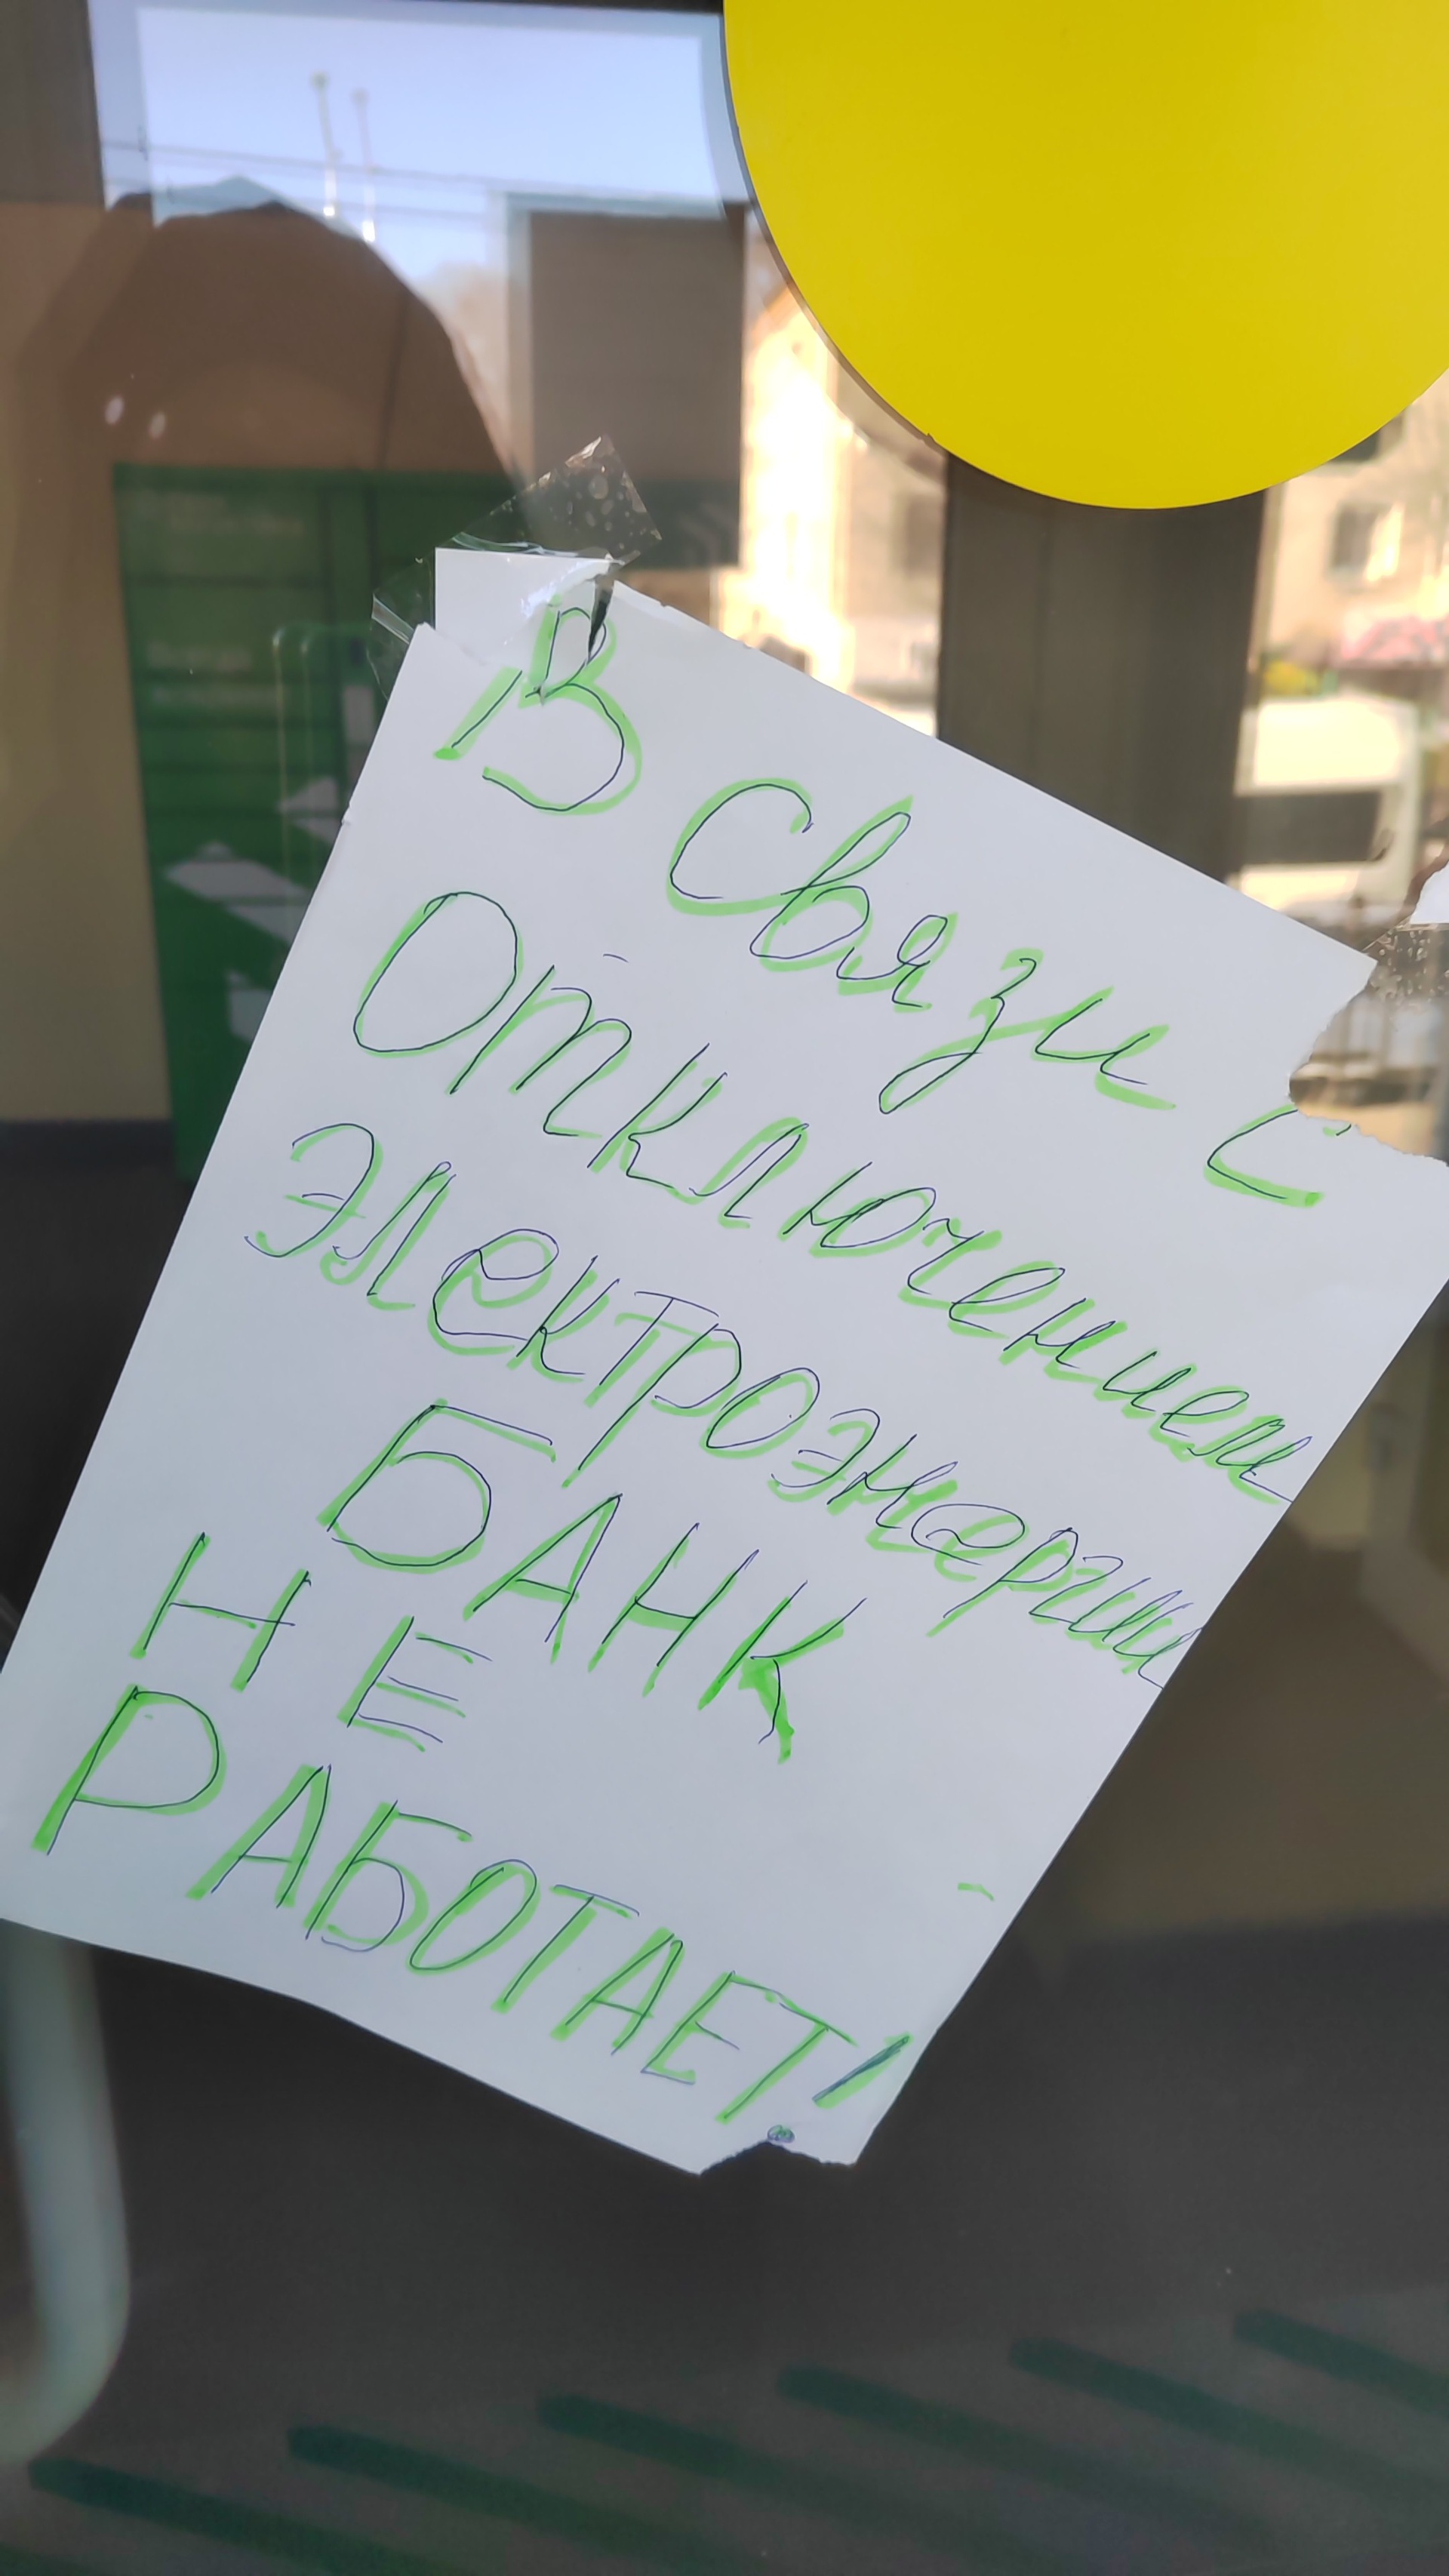 В Связи с
Отключением
электроэнергии
БАНК
НЕ
РАБОТАЕТ!